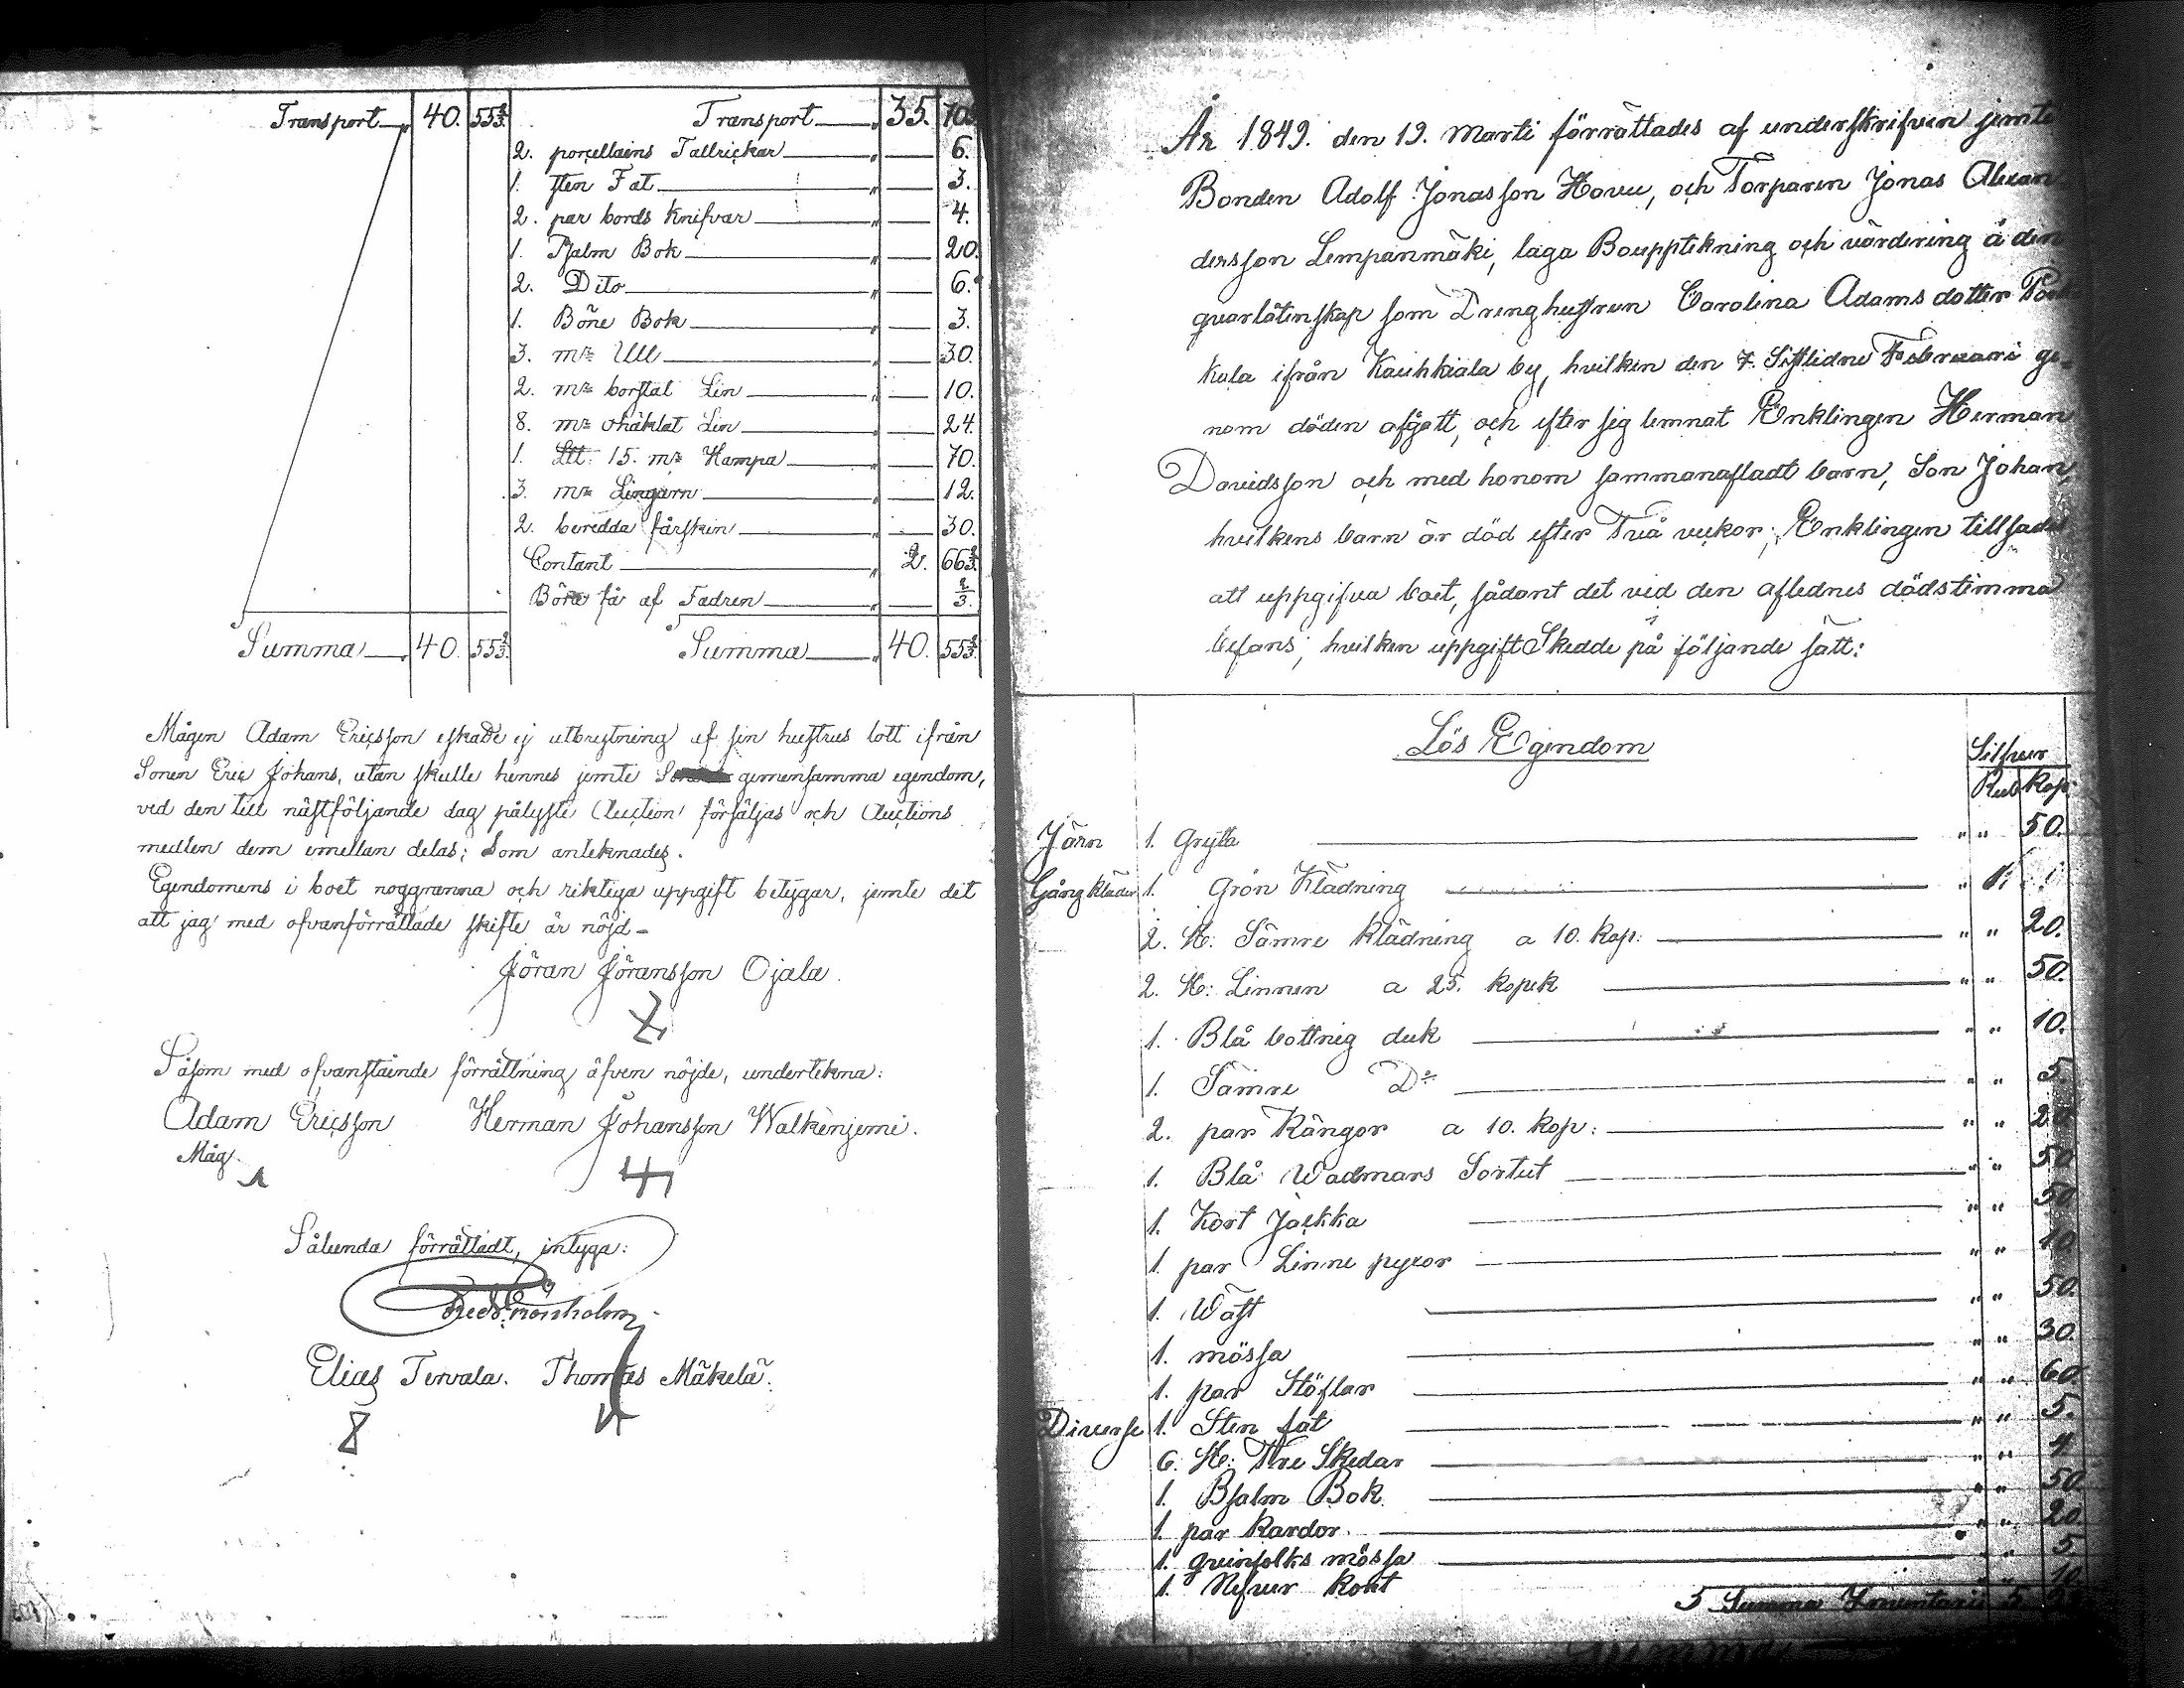 Transport 40. 55 2/3. Transport 35. 10
2. porcellains Tallrickar 6.
1. sten Fat 3.
2. par bords Knifvar 4.
1. Psalm Bok 20.
2. Dito 6.
1. Böne Bok 3.
3. m℔ Ull 30.
2. m℔ borstat Lin 10.
8. m℔ ohäklat Lin 24.
1. Ltt. 15. m℔ Hampa 70.
3. m℔ Lingarn 12.
2. beredda fårskin 30.
Contant 2. 66 2/3.
Böra få af Fadren 2/3.
Summa 40. 55 2/3. Summa 40. 55 2/3.
Mågen Adam Ericsson eskade ej utbrytning af sin hustrus lott ifrån
Sonen Eric Johans, utan skulle hennes jemte gemensamma egendom,
ved den till nästföljande dag pålyste Auction försäljas och Auctions
medlen dem emellan delas; Som anteknades.
Egendomens i boet noggranna och riktiga uppgift betygar, jemte det
att jag med ofvanförrättade skifte är nöjd-
Jöran Jöransson Ojala.
Såsom med ofvanstående förrättning äfven nöjde, undertekna:
Adam Ericsson Herman Johansson Walkenjemi.
Måg.
Sålunda förrättadt, intyga:
Elias Tervala. Thomas Mäkelä.
År 1849. den 19. Marti förrättades af underskrifven jemte
Bonden Adolf Jonasson Hovu, och Torparen Jonas Alexan
dersson Lempanmäki, laga Bouppteckning och värdering å den
qvarlåtenskap som Drenghustrun Carolina Adams dotter
kula ifrån Kauhkiala by, hvilken den 7. Sistlidne Februari ge-
nom döden afgått, och efter sig lemnat Enklingen Herman
Davidsson och med honom sammanafladt barn, Son Johan,
hvilkens barn är död efter Två veckor; Enklingen tillsades
att uppgifva boet, sådant det ved den aflednes dödstimma
befans, hvilken uppgift Skedde på följande sätt:
Lös Egendom
Silfver
Rub Kop
Järn 1. Gryta " " 50.
Gång kläder 1. Grön Klädning " 1.
2. St: Sämre klädning a 10. Kop: " " 20.
2. St: Linnen a 25. kopek " " 50.
1. Blå bottnig duk " " 10.
1. Sämre D:o " " 5.
2. par Kängor a 10. kop: " " 20
1. Blå Wadmars Sortut " " 50
1. Kort Jackka " " 50
1. par Linne pyxor " " 10
1. Wäst " " 50.
1. mössa " " 30.
1. par Stöflar " " 60.
Diverse 1. Sten fat " " 5.
6. St: Tre Skedar " " 4.
1. Bsalm Bok " " 50
1. par Kardor. " " 20
1. qvinfolks mössa " " 5.
1. Nefver Kont " " 10.
Summa Inventarie 5